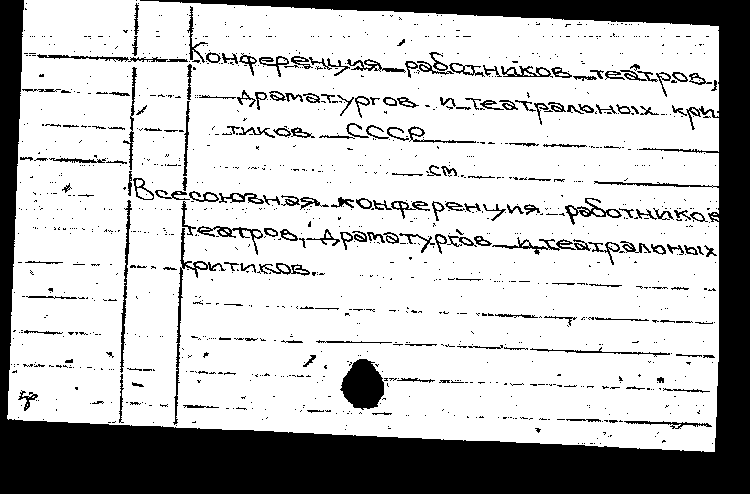 Конференция работников театров,
драматургов и театральных кри-
тиков СССР
см.
Всесоюзная конференция работников
театров, драматургов и театральных
критиков.